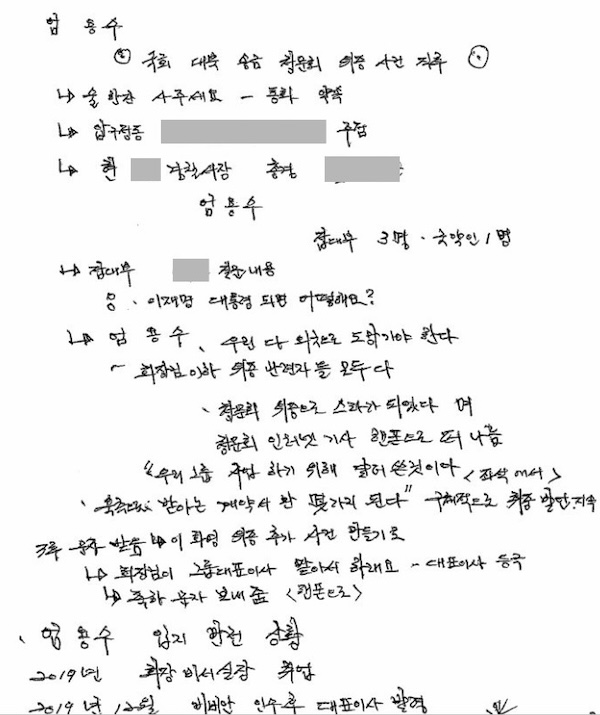 엄용수
◎ 국회 대북 송금 청문회 위증 사건 직후 ◎
↳ 술 한잔 사주세요 - 통화 약속
↳ 압구정동 주점
↳ 현 경찰서장 총경
엄용수
접대부 3명 · 국악인 1명
↳ 접대부 질문내용
응 · 이재명 대통령 되면 어떻해요?
↳ 엄용수, 우린 다 외국으로 도망가야 한다
~ 회장님이하 위증 반련자들 모두다
· 청문회 위증으로 스타가 되었다 며
청문회 인터넷 기사 핸폰으로 떠 나옴
"우리그룹 취업 하기 위해 달러 쓴것이다 <좌석에서>
받아는 한 된다" 구체적으로 위증 발언 지속
3류 문자 받음 이화영 위증 추가 사건 만들기로
↳ 회장님이 그룹대표이사 맡아서 하래요 - 대표이사 등극
↳ 축하 문자 보내줌 <핸폰으로>
· 엄용수 입지 관련 상황
2019년 회장 비서실장 취업
2019년 12월 비비안 인수후 대표이사 발령